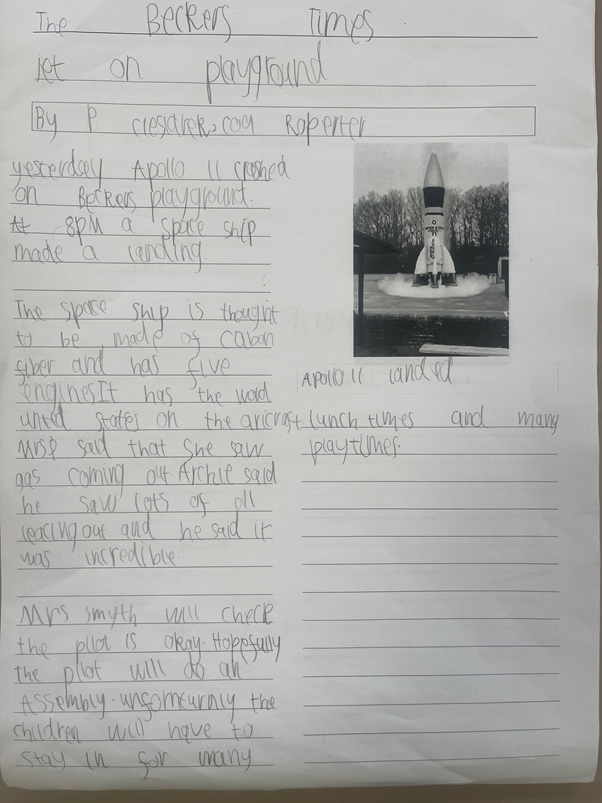 The Beckers Times
jet on playground
By P
Roperter
yesterday Apollo 11 crashed
on Beckers playground.
At 8PM a space ship
made a landing
The space ship is thought
to be made of cabon
fiber and has five
enginesIt has the word
unted states on the aricrast
MrsP said that she saw
gas coming out Archie said
he saw lots of oil
leacing out and he said it
was incredible.
Mrs smyth will check
the pilot is okay. Hoppfully
the pilot will do an
Assembly. unsometurnly the
children will have to
stay in for many
APOllO 11 landed
lunch times and many
playtimes.